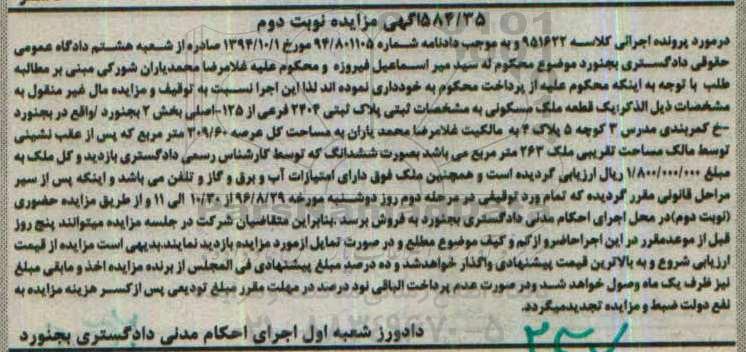 ۵۸۴/۳۵اگهی مزایده نوبت دوم
درمورد پرونده اجرائی کلاسه ۹۵۱۶۲۲ و به موجب دادنامه شماره ۹۴/۸۰۱۱۰۵ مورخ ۱۳۹۴/۱۰/۱ صادره از شعبه هشتم دادگاه عمومی
حقوقی دادگستری بجنورد موضوع محکوم له سید میر اسماعیل فیروزه و محکوم علیه غلامرضا محمدیاران شورکی مبنی بر مطالبه
طلب با توجه به اینکه محکوم علیه از پرداخت محکوم به خودداری نموده اند لذا این اجرا نسبت به توقیف و مزایده مال غیر منقول به
مشخصات ذیل الذکر:یک قطعه ملک مسکونی به مشخصات ثبتی پلاک ثبتی ۲۴۰۴ فرعی از ۱۲۵-اصلی بخش ۲ بجنورد /واقع در بجنورد
-خ کمربندی مدرس ۳ کوچه ۵ پلاک ۴ به مالکیت غلامرضا محمد یاران به مساحت کل عرصه ۳۰۹/۶۰ متر مربع که پس از عقب نشینی
توسط مالک مساحت تقریبی ملک ۲۶۳ متر مربع می باشد بصورت ششدانگ که توسط کارشناس رسمی دادگستری بازدید و کل ملک به
مبلغ ۱/۸۰۰/۰۰۰/۰۰۰ ریال ارزیابی گردیده است و همچنین ملک فوق دارای امتیازات آب و برق و گاز و تلفن می باشد و اینکه پس از سیر
مراحل قانونی مقرر گردیده که تمام ورد توقیفی در مرحله دوم روز دوشنبه مورخه ۹۶/۸/۲۹ از۱۰/۳۰ الی ۱۱ و از طریق مزایده حضوری
(نوبت دوم)در محل اجرای احکام مدنی دادگستری بجنورد به فروش برسد.بنابراین متقاضیان شرکت در جلسه مزایده میتوانند پنج روز
قبل از موعدمقرر در این اجراحاضرو ازکم و کیف موضوع مطلع و در صورت تمایل ازمورد مزایده بازدید نمایند.بدیهی است مزایده از قیمت
ارزیابی شروع و به بالاترین قیمت پیشنهادی واگذار خواهدشد و ده درصد مبلغ پیشنهادی فی المجلس از برنده مزایده اخذ و مابقی مبلغ
نیز ظرف یک ماه وصول خواهد شد ودر صورت عدم پرداخت الباقی نود درصد در مهلت مقرر مبلغ تودیعی پس ازکسر هزینه مزایده به
نفع دولت ضبط و مزایده تجدیدمیگردد.
دادورز شعبه اول اجرای احکام مدنی دادگستری بجنورد